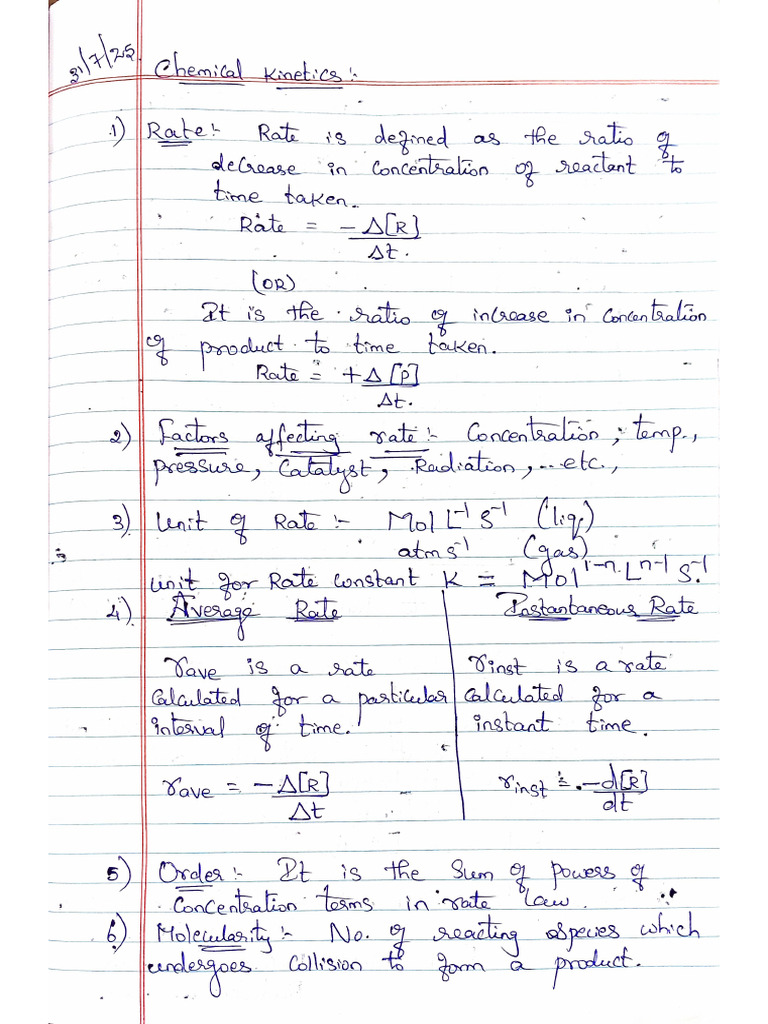 31/7/25
Chemical Kinetics:-
1) Rate:- Rate is defined as the ratio of
decrease in concentration of reactant to
time taken.
Rate = -Δ[R]
Δt.
(OR)
It is the ratio of increase in concentration
of product to time taken.
Rate = +Δ[P]
Δt.
2) Factors affecting rate:- Concentration, temp.,
pressure, Catalyst, Radiation, ...etc.,
3) Unit of Rate:- Mol L⁻¹ S⁻¹ (liq.)
atm s⁻¹ (gas)
Unit for Rate constant K = Mol¹⁻ⁿ Lⁿ⁻¹ S⁻¹.
4) Average Rate
rave is a rate
calculated for a particular
interval of time.
rave = -Δ[R]
Δt
Instantaneous Rate
rinst is a rate
calculated for a
instant time.
rinst = -d[R]
dt
5) Order:- It is the sum of powers of
concentration terms in rate law.
6) Molecularity:- No. of reacting species which
undergoes collision to form a product.